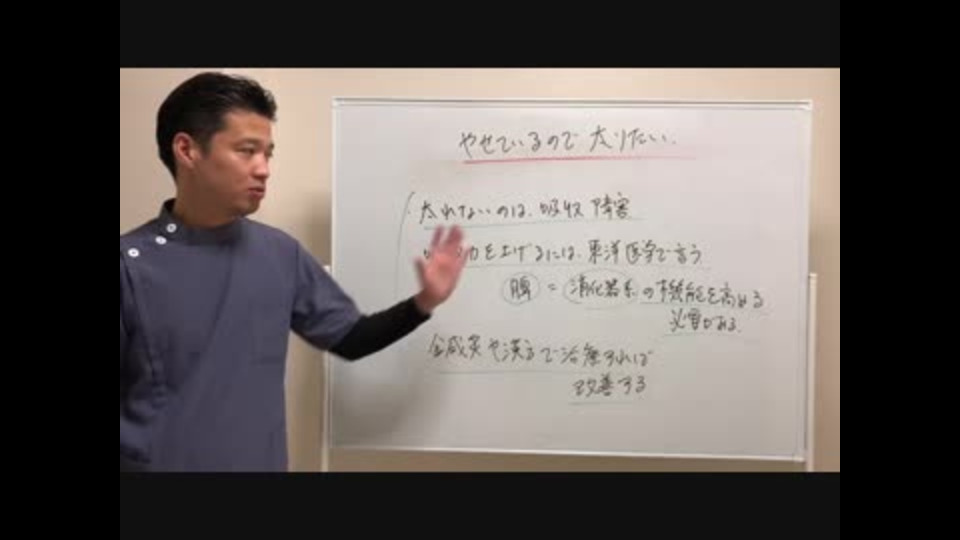 やせているので太りたい.
太れないのは、吸収障害
力を上げるには、東洋医学で言う
脾 = 消化器系の機能を高める
必要がある.
鍼灸や漢方で治療すれば
改善する